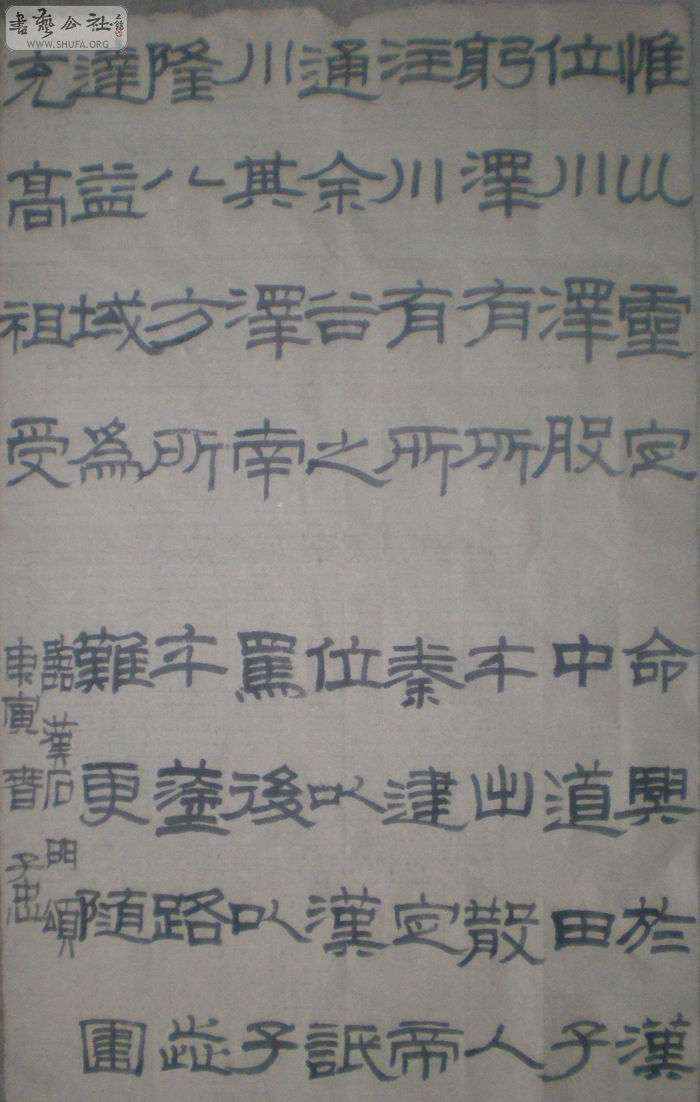 書藝公社
WWW.SHUFA.ORG
惟巛靈定
位川澤股
躬澤有所
注川有所
通余谷之
川其澤南
隆八方所
達益域爲
充高祖受
命興於漢
中道田子
午出散入
秦建定帝
位以漢詆
焉後以子
午塗路歰
難更隨圍
臨漢石門頌
庚寅春子忠